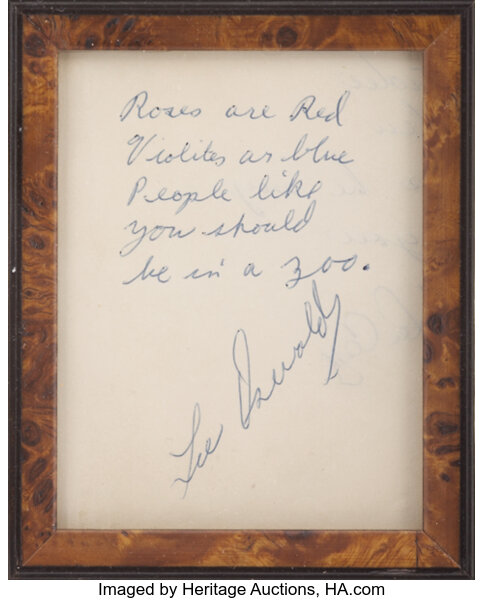 Roses are Red
Violites ar blue
People like
you should
be in a zoo.
Lee Oswald
Imaged by Heritage Auctions, HA.com